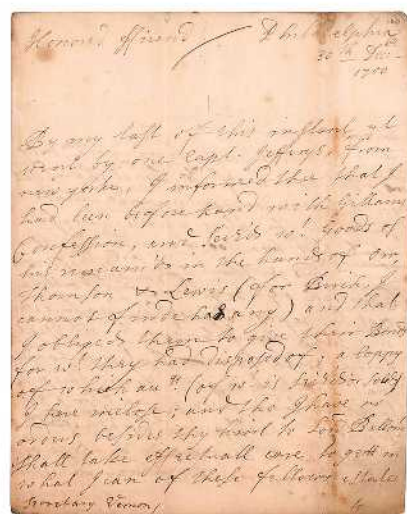 Honour'd ffriend Philadelphia
30th Decr
1700
By my last of this instant yt
went by one Capt. Jeffrys, from
new yorke, I informed thee that I
had been beforehand with Gillams
Confession, and seiz'd wt goods of
his remain'd in the hands of
Thomson & Lewis (for Burch, I
cannot finde has any) and that
I obliged them to give their Bond
for wt they had disposed of, a coppy
of which
I have inclosed; and tho I have no
orders besides thy word to Lord Bellom
shall take effectuall care to gett in
what I can of these fellows estates
Secretary Vernon,